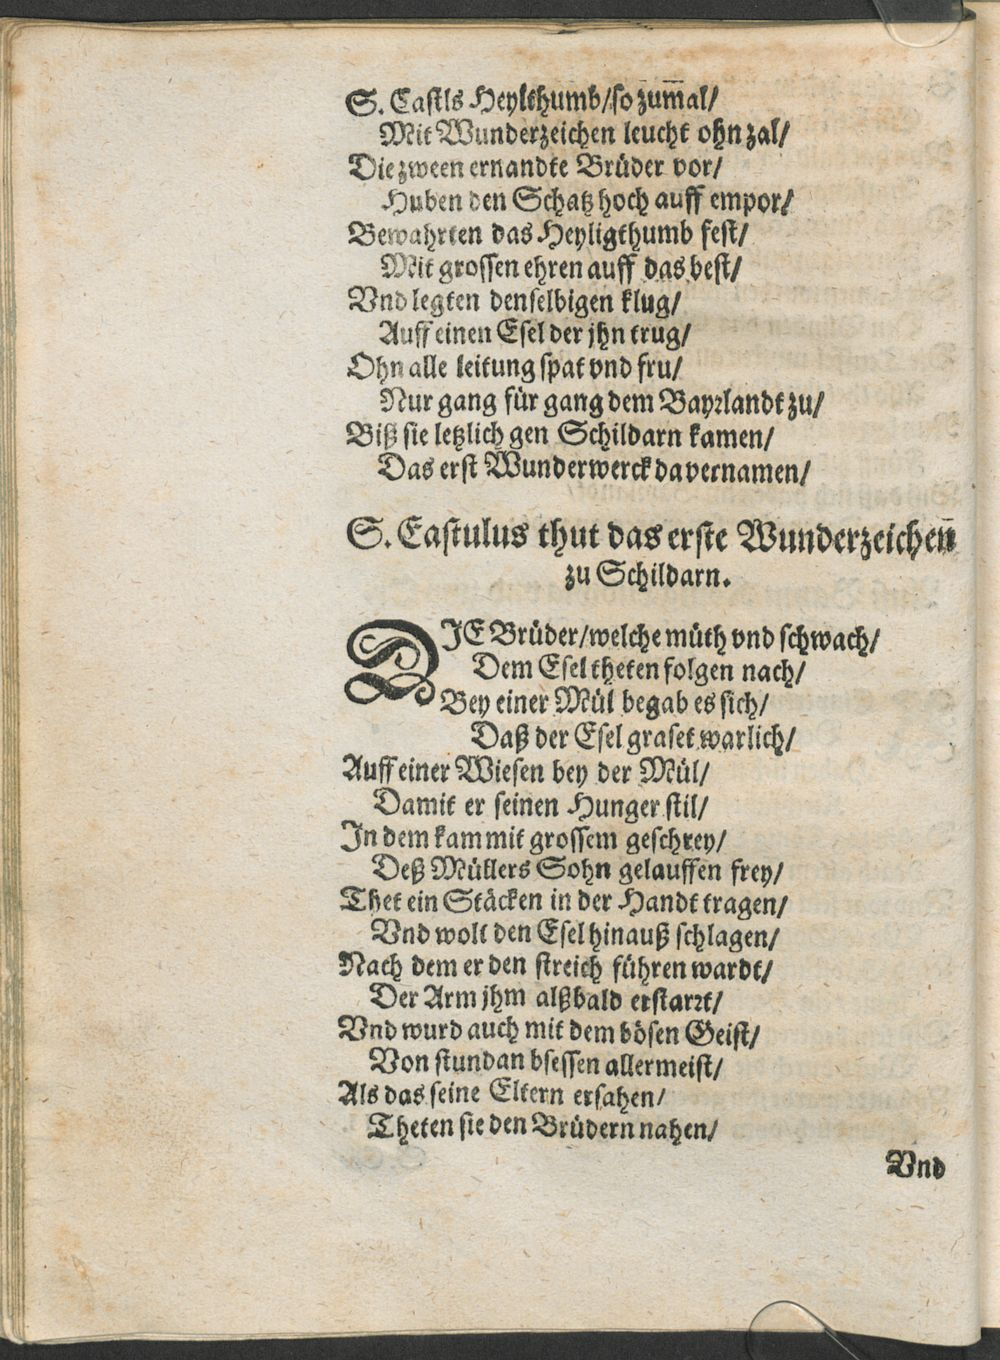 S. Castls Heylthumb/so zum̄al/
Mit Wunderzeichen leucht ohn zal/
Die zween ernandte Brüder vor/
Huben den Schatz hoch auff empor/
Bewahrten das Heyligthumb fest/
Mit grossen ehren auff das best/
Vnd legten denselbigen klug/
Auff einen Esel der jhn trug/
Ohn alle leitung spat vnd fru/
Nur gang für gang dem Bayrlandt zu/
Biß sie letzlich gen Schildarn kamen/
Das erst Wunderwerck da vernamen/
S. Castulus thut das erste Wunderzeichen̄
zu Schildarn.
DIE Brüder/welche müth vnd schwach/
Dem Esel theten folgen nach/
Bey einer Mül begab es sich/
Daß der Esel graset warlich/
Auff einer Wiesen bey der Mül/
Damit er seinen Hunger stil/
In dem kam mit grossem geschrey/
Deß Müllers Sohn gelauffen frey/
Thet ein Stäcken in der Handt tragen/
Vnd wolt den Esel hinauß schlagen/
Nach dem er den streich führen wardt/
Der Arm jhm alßbald erstarrt/
Vnd wurd auch mit dem bösen Geist/
Von stundan bsessen allermeist/
Als das seine Eltern ersahen/
Theten sie den Brüdern nahen/
Vnd